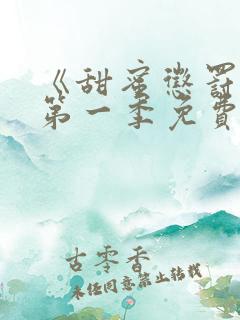 《甜蜜懲罰
第一季免費
古零香
未经同意禁止转载